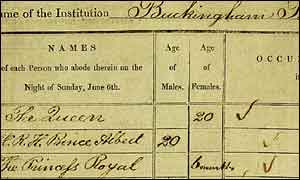 me of the Institution Buckingham
NAMES Age Age
of each Person who abode therein on the of of OCCU
Night of Sunday, June 6th. Males. Females.
The Queen 20
H.R.H. Prince Albert 20
The Princess Royal 6 months